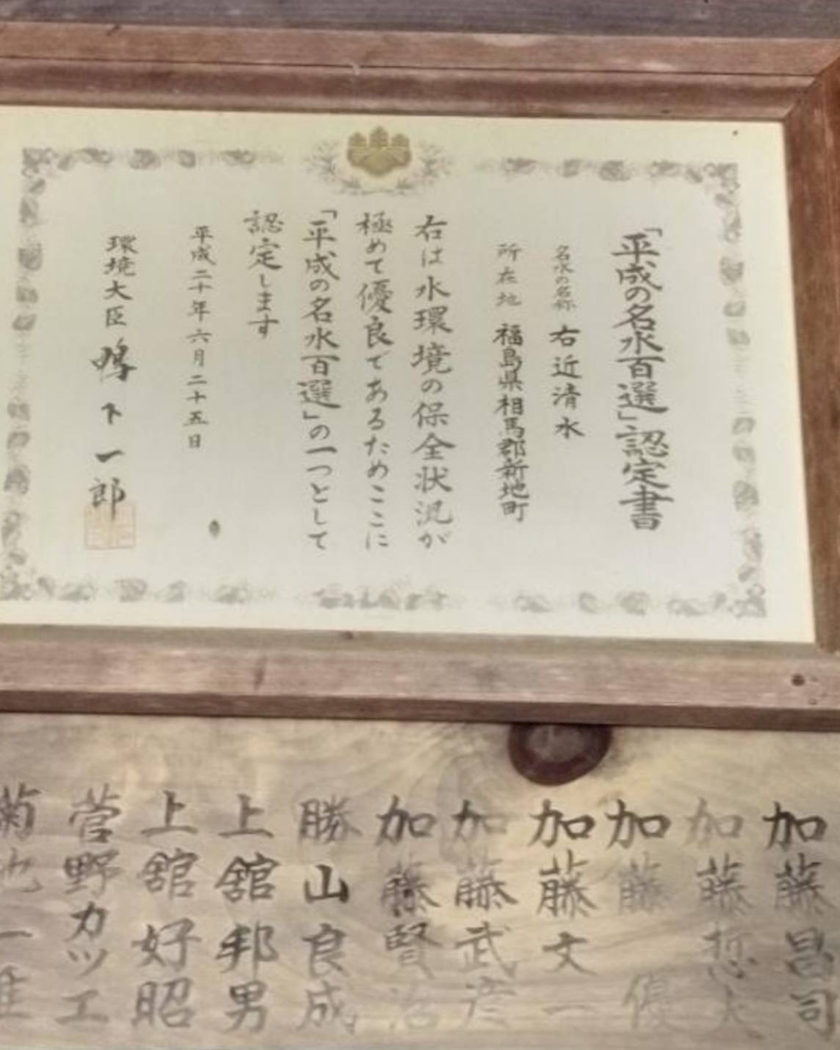 「平成の名水百選」認定書
名水の名称 右近清水
所在地 福島県相馬郡新地町
右は水環境の保全状況が
極めて優良であるためここに
「平成の名水百選」の一つとして
認定します
平成二十年六月二十五日
環境大臣 鴨下一郎
加藤昌司
加藤哲夫
加藤優
加藤文一
加藤武彦
加藤賢治
勝山良成
上舘邦男
上舘好昭
菅野カツエ
菊池一